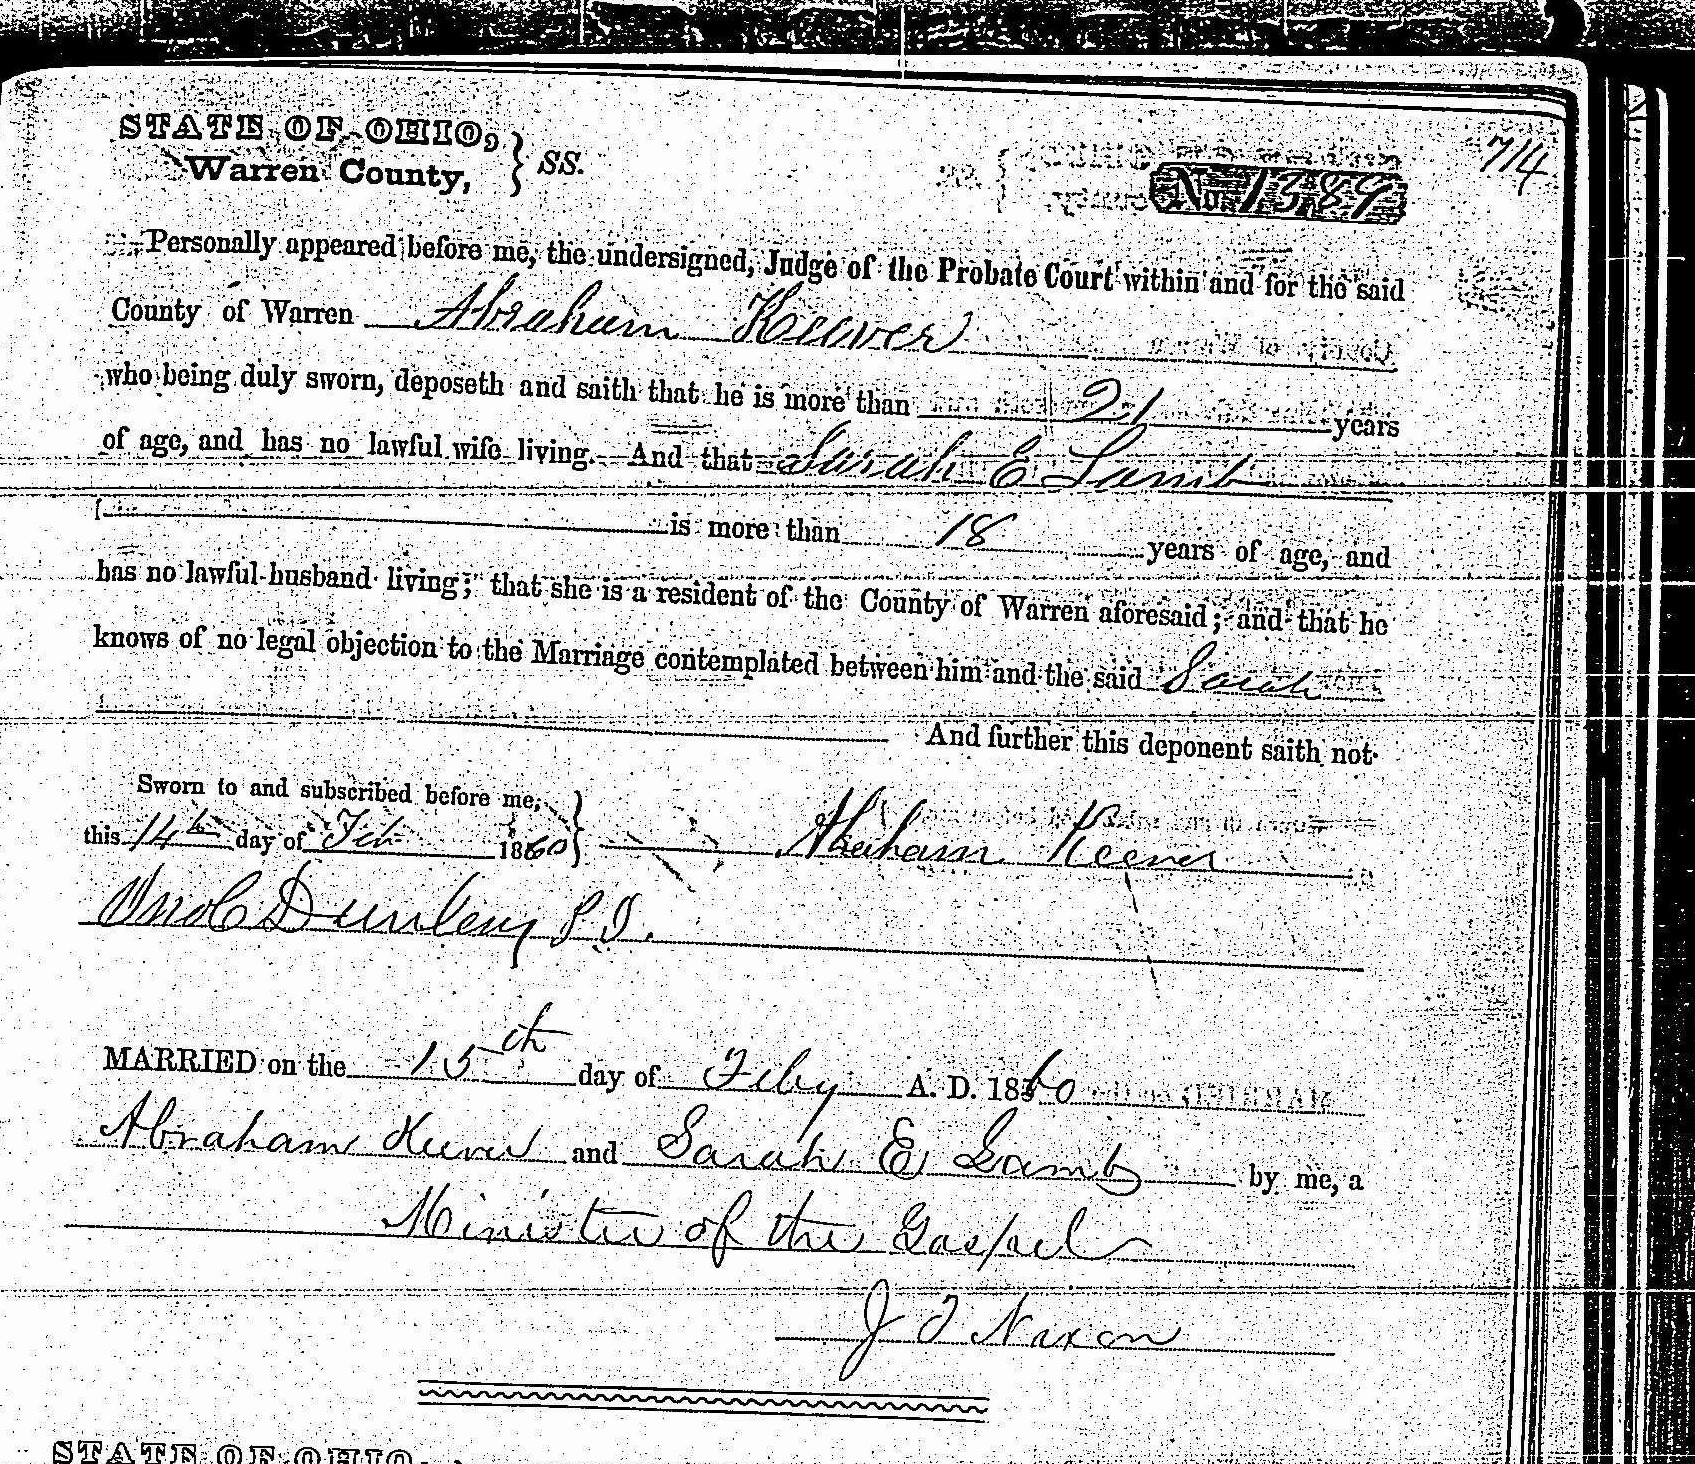 714
STATE OF OHIO,
Warren County, } SS.
No 1389
Personally appeared before me, the undersigned, Judge of the Probate Court within and for the said
County of Warren Abraham Keever
who being duly sworn, deposeth and saith that he is more than 21 years
of age, and has no lawful wife living. And that Sarah E Lamb
is more than 18 years of age, and
has no lawful husband living; that she is a resident of the County of Warren aforesaid; and that he
knows of no legal objection to the Marriage contemplated between him and the said Sarah
And further this deponent saith not.
Sworn to and subscribed before me,
this 14th day of Feb 1860 } Abraham Keever
Dunlevy P. J.
MARRIED on the 15th day of Feby A. D. 1860
Abraham Keever and Sarah E Lamb by me, a
Minister of the Gospel
J Naxon
STATE OF OHIO,